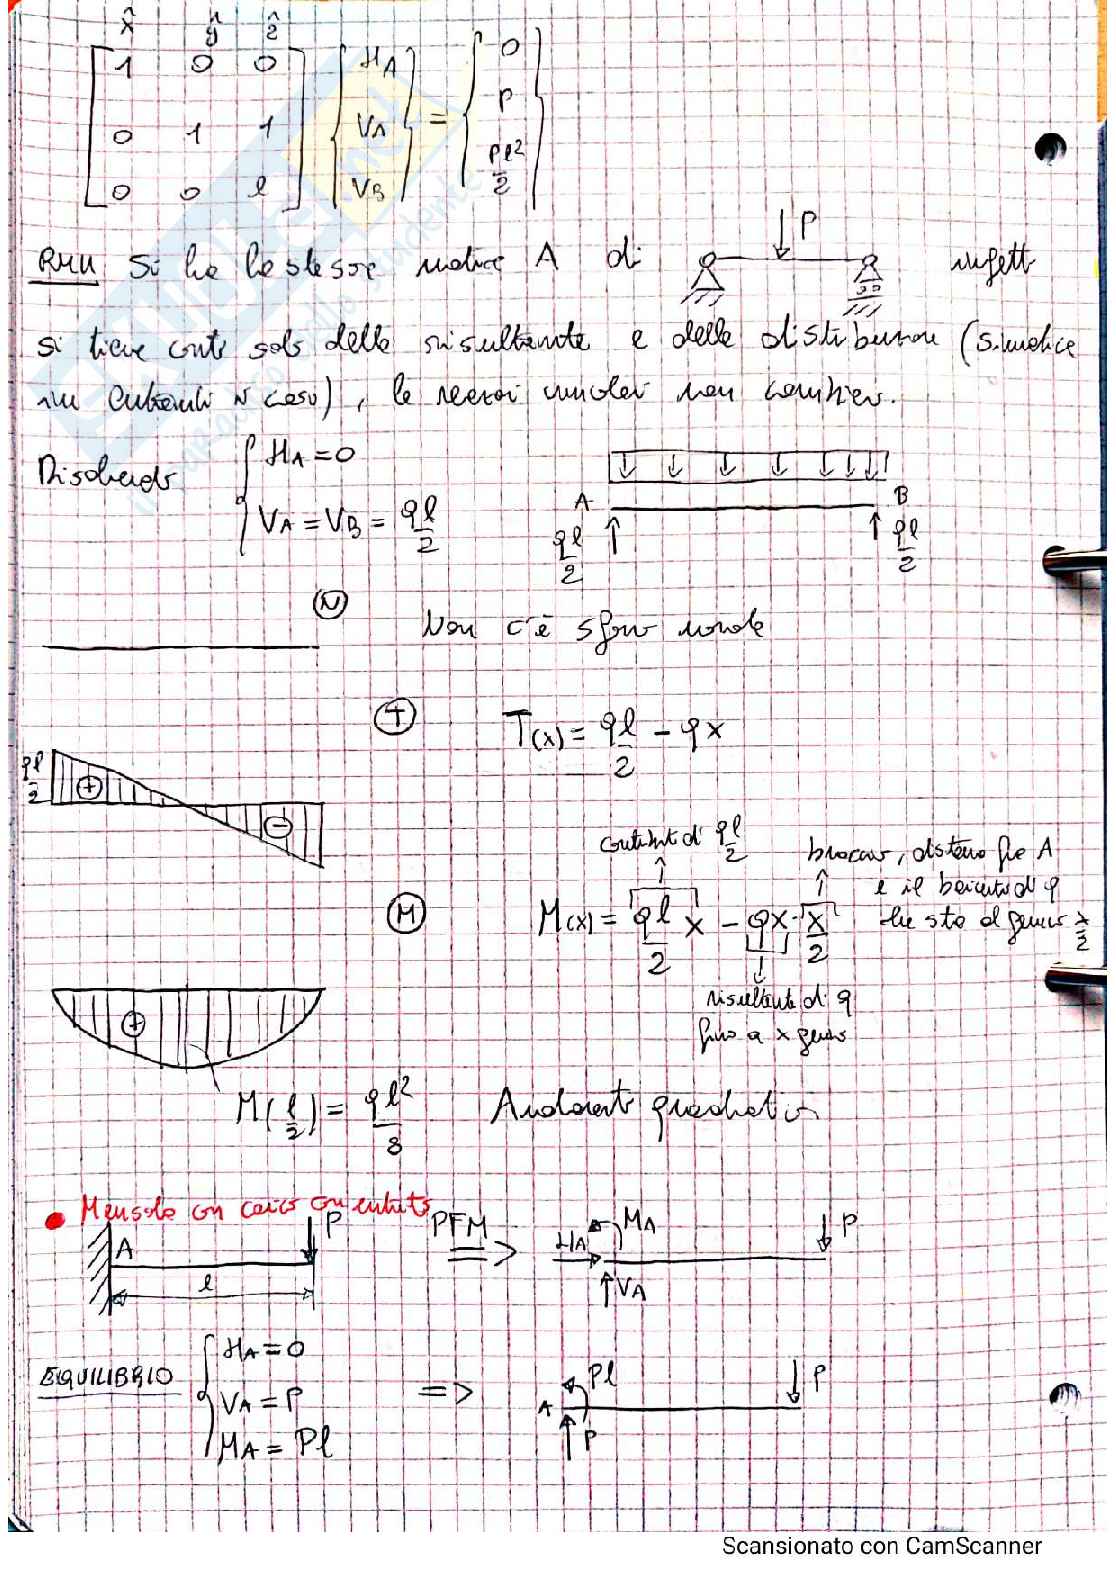 x̂ ŷ ẑ
[1 0 0] {H_A} = {0}
[0 1 1] {V_A} {P}
[0 0 l] {V_B} {Pl²/2}
P
Si ha la stessa matrice A di
si tiene conto solo della risultante e della distribuzione (simmetrica
in entrambi i casi), le reazioni vincolari non cambiano.
Risolvendo { H_A = 0
V_A = V_B = ql/2
A B
ql/2 ql/2
N Non c'è sforzo normale
T T(x) = ql/2 - qx
ql/2 + -
contributo di ql/2 braccio, distanza fra A
e il baricentro di q
che sta al generico x/2
M M(x) = ql/2 x - qx · x/2
risultante di q
fino a x generico
+
M(l/2) = ql²/8 Andamento quadratico
• Mensola con carico concentrato
A P l PFM => H_A M_A V_A P
EQUILIBRIO { H_A = 0
V_A = P
M_A = Pl
=> A Pl P P
Scansionato con CamScanner